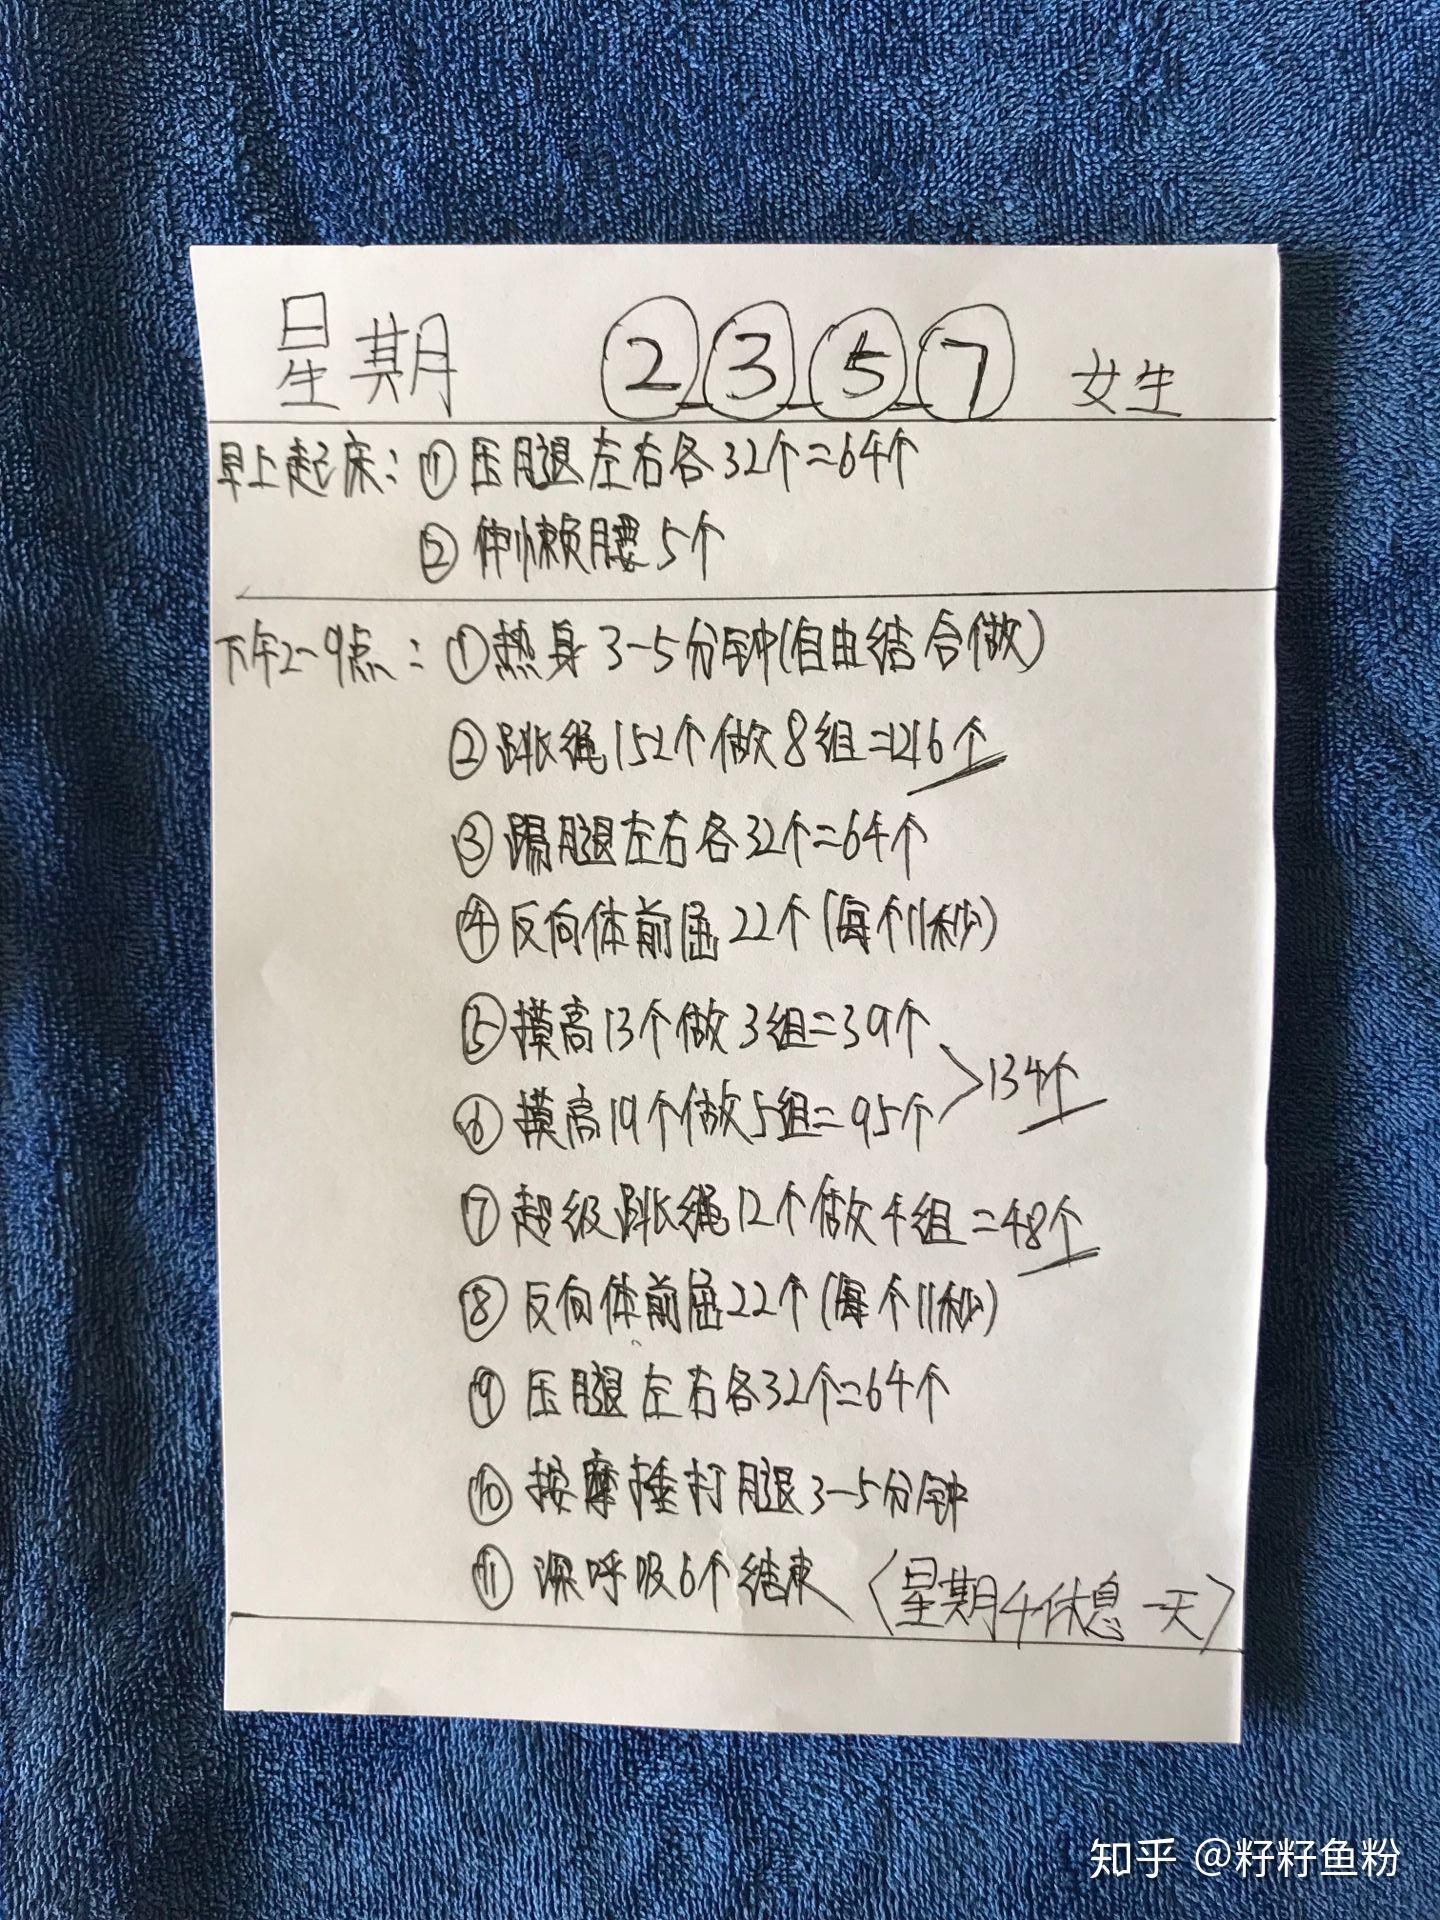 星期 ② ③ ⑤ ⑦ 女生
早上起床：① 压腿左右各32个=64个
② 伸懒腰5个
下午2-9点：① 热身3-5分钟(自由结合做)
② 跳绳152个做8组=1216个
③ 踢腿左右各32个=64个
④ 反向体前屈22个(每个11秒)
⑤ 摸高13个做3组=39个
>134个
⑥ 摸高19个做5组=95个
⑦ 超级跳绳12个做4组=48个
⑧ 反向体前屈22个(每个11秒)
⑨ 压腿左右各32个=64个
⑩ 按摩捶打腿3-5分钟
⑪ 深呼吸6个结束〈星期4休息一天〉
知乎 @籽籽鱼粉